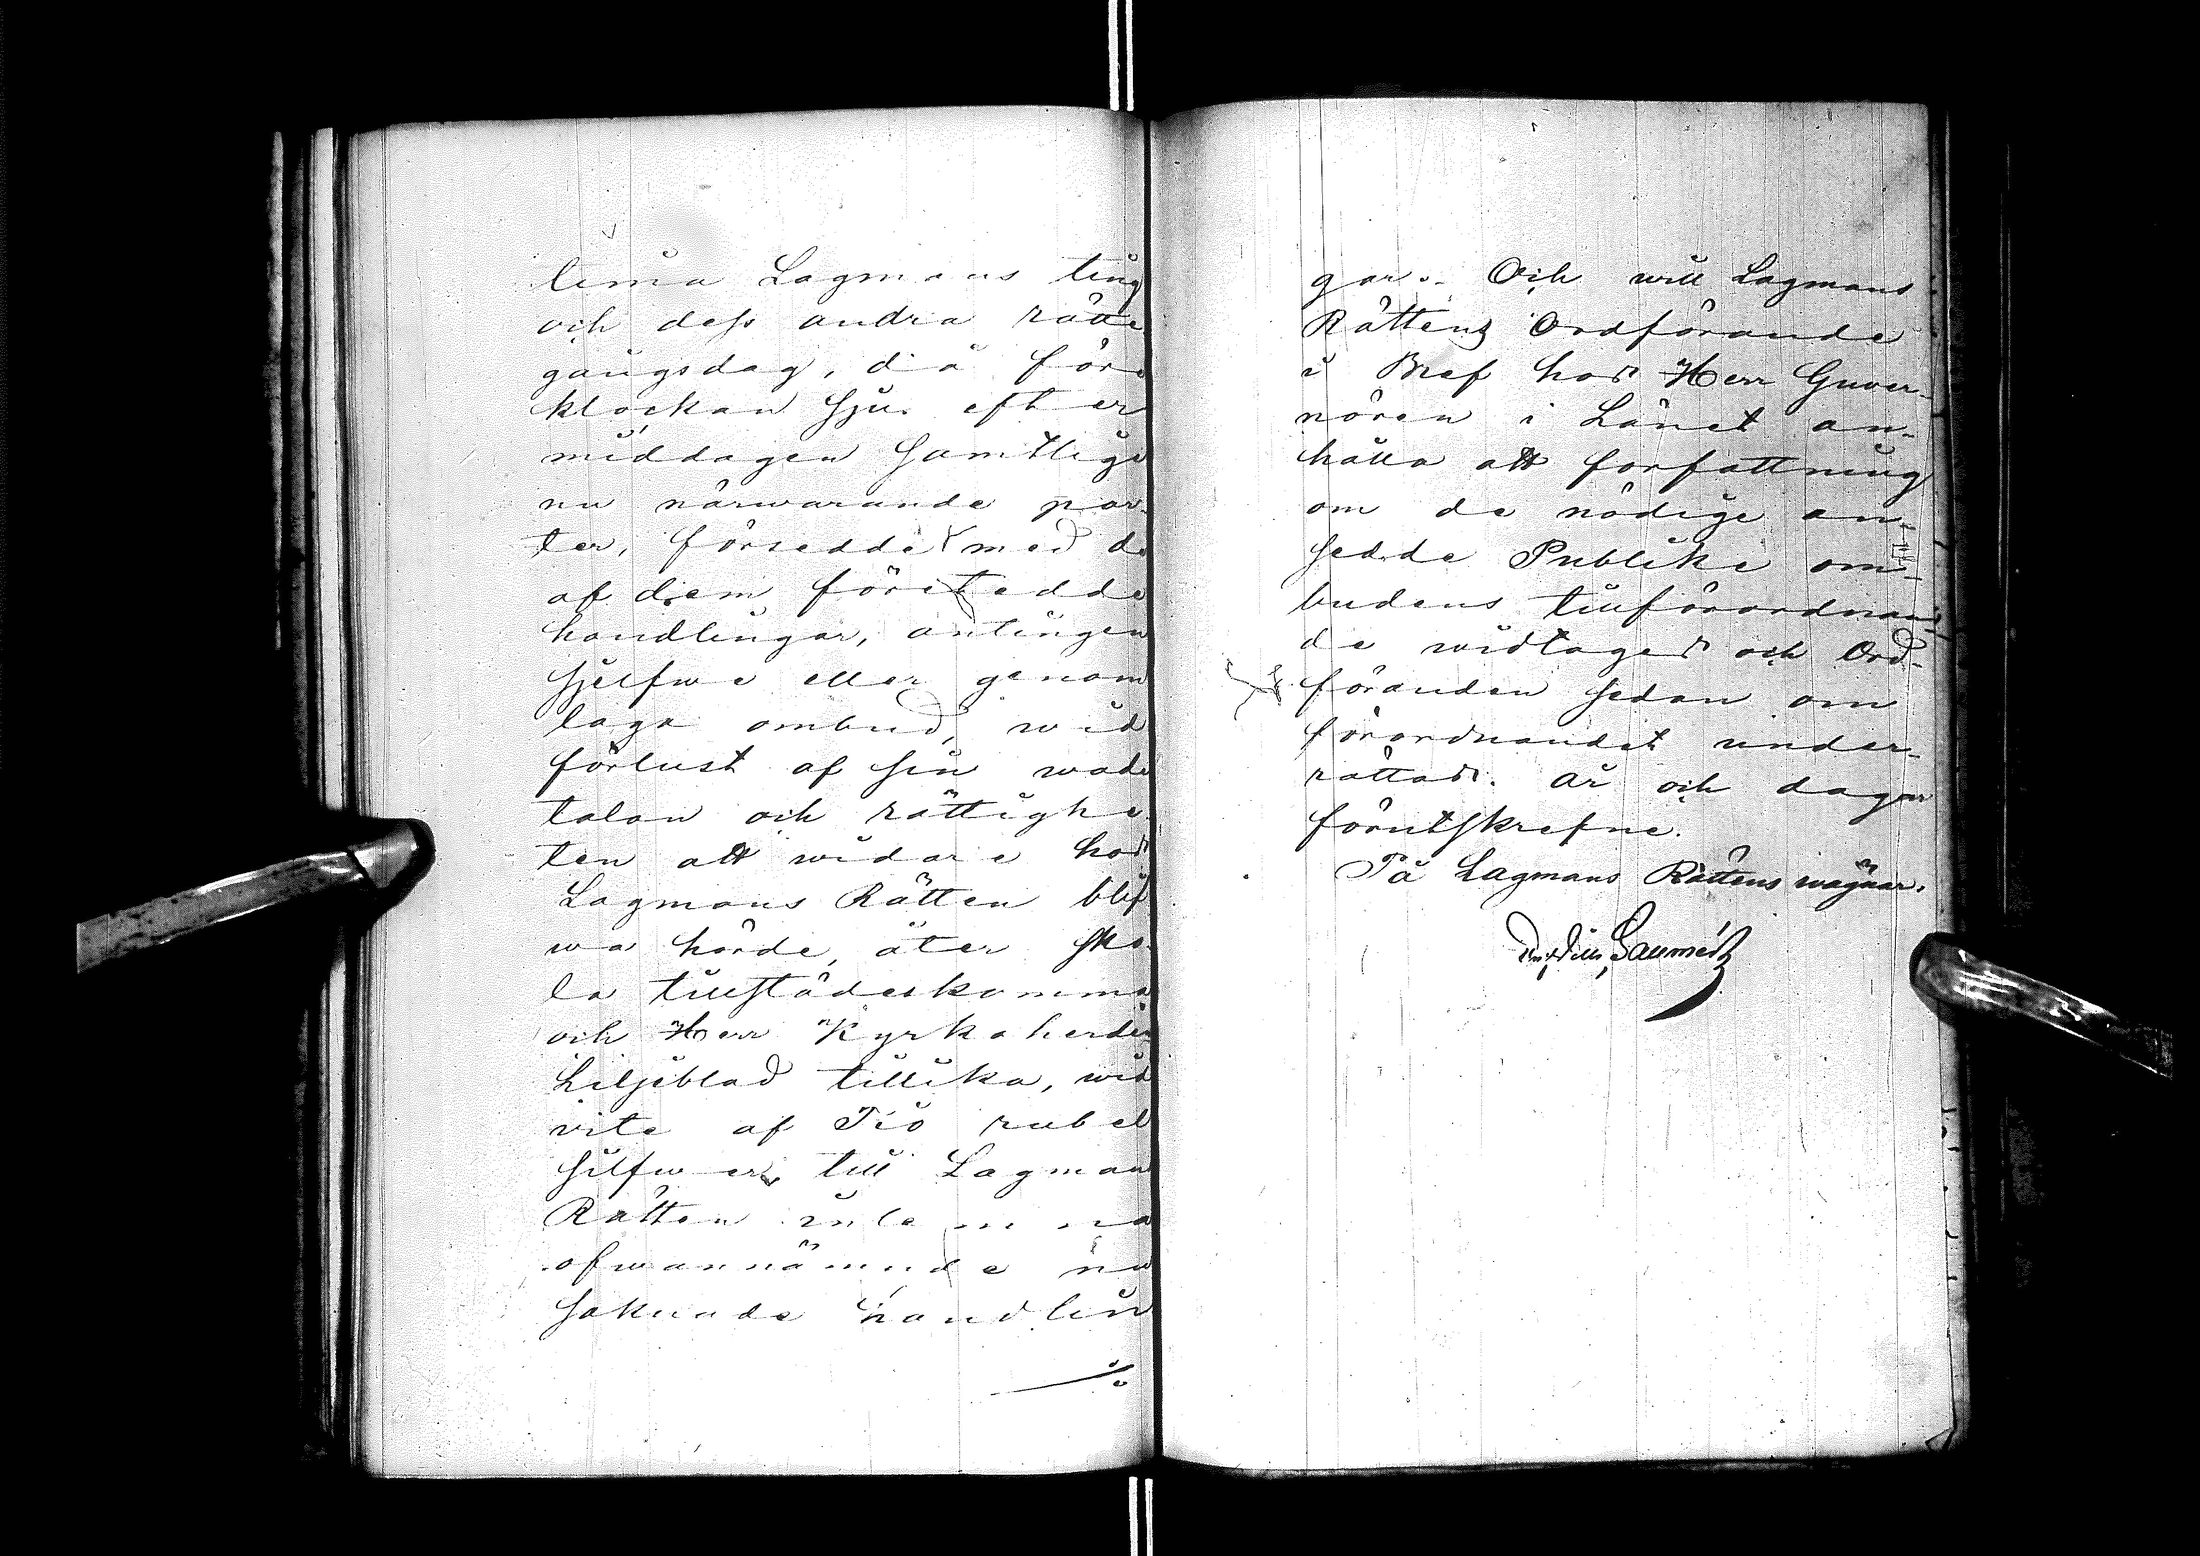 linia Lagmans ting
och dess andra rätte
gångsdag, då före
klockan sju efter
middagen samtlige
nu närwarande par
ter, försedde med de
af dem företedde
handlingar, antingen
sjelfwe eller genom
laga ombud, wid
förlust af sin wade
talan och rättighe
ten att widare hos
Lagmans Rätten blif
wa hörde, åter sko
la tillstädeskomma
och Herr Kyrkoherden
Liljeblad tillika, wid
vite af Tio rubel
silfwer, till Lagmans
Rätten inlemna
ofwannämnde nu
saknade handlin
gar. Och will Lagmans
Rättens Ordförande
i Bref hos Herr Guver-
nören i Länet an-
hålla att författning
om de nödige an-
sedde Publike om-
budens tillförordnan
de widtages och Ord-
föranden sedan om
förordnandet under-
rättas. År och dagar
förutskrefne.
På Lagmans Rättens wägnar.